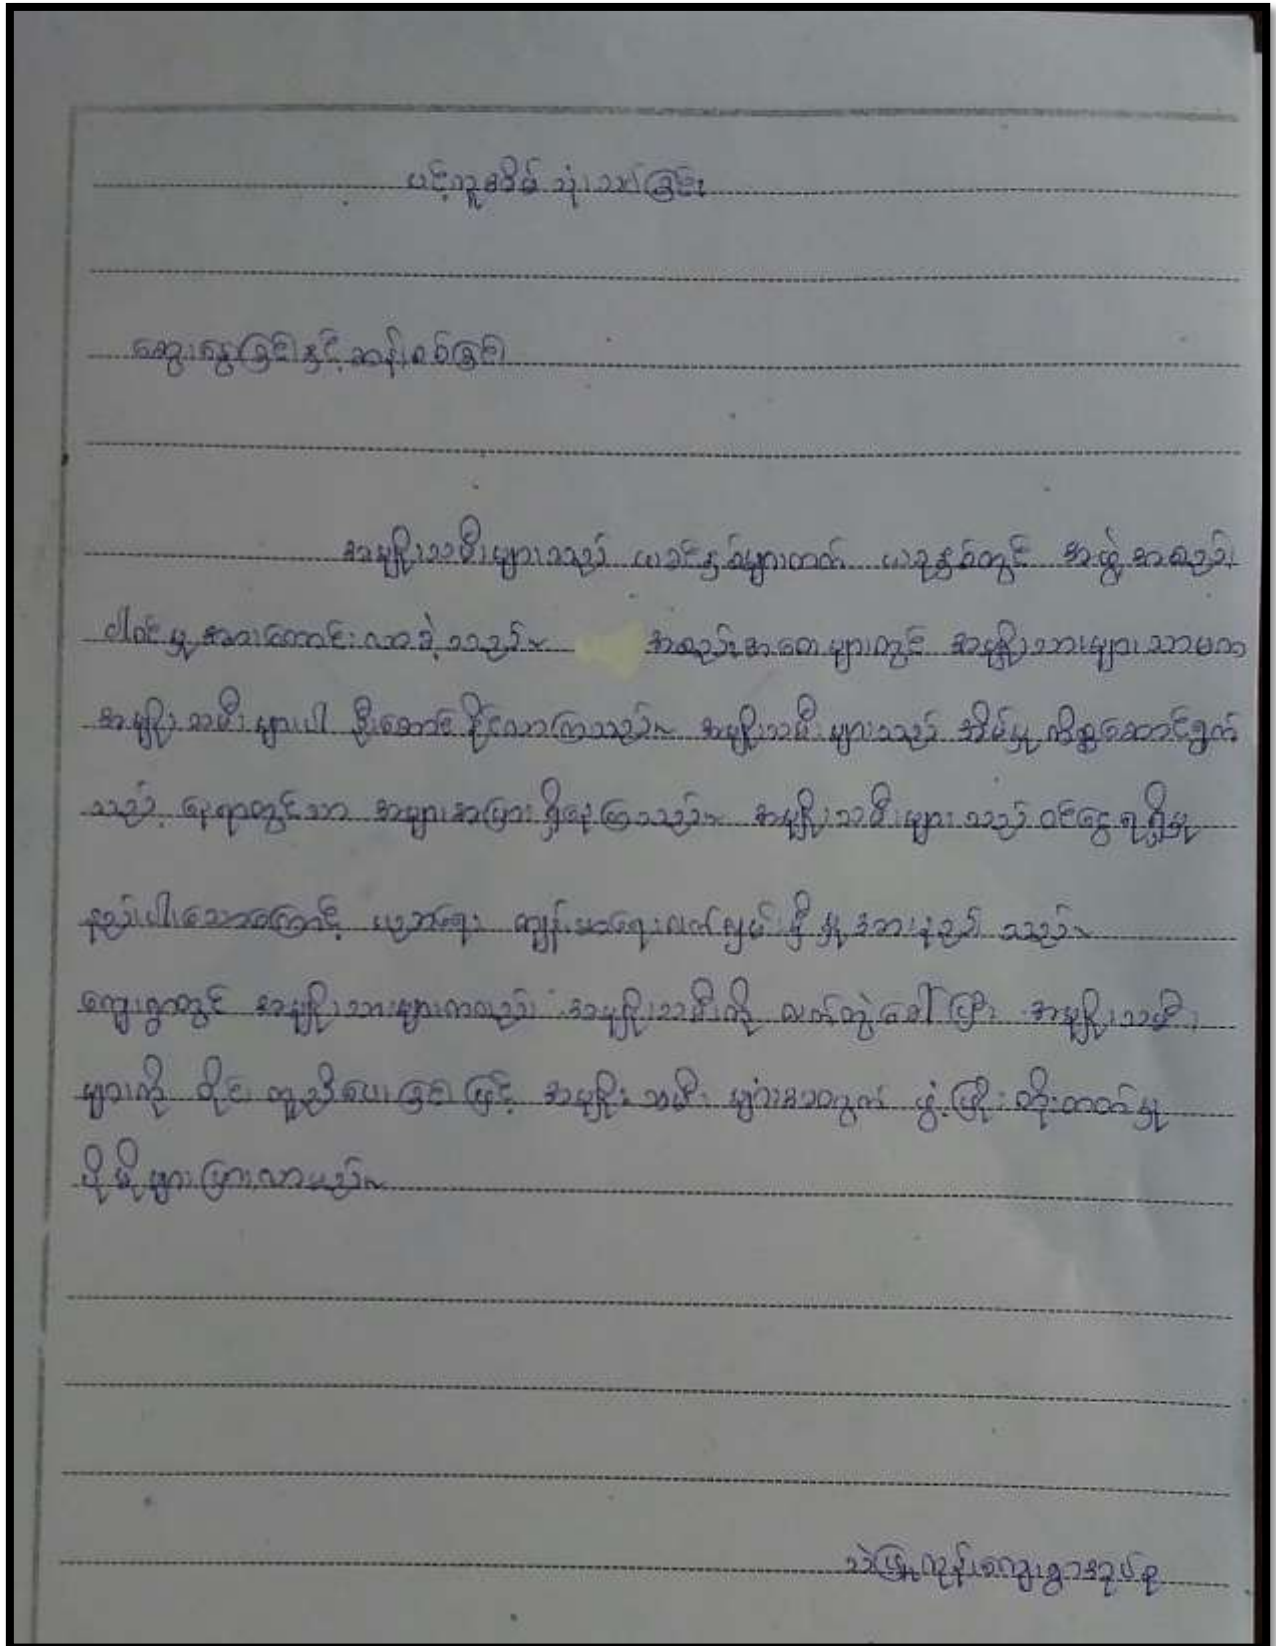 ပင့်ကူအိမ် သုံးသပ်ခြင်း
ဆွေးနွေးခြင်းနှင့် ဆန်းစစ်ခြင်း
အမျိုးသမီးများသည် ယခင်နှစ်များထက် ယခုနှစ်တွင် အဖွဲ့အစည်း
ပါဝင်မှု အားကောင်းလာခဲ့သည်။ အစည်းအဝေးများတွင် အမျိုးသားများသာမက
အမျိုးသမီးများပါ ဦးဆောင်နိုင်လာကြသည်။ အမျိုးသမီးများသည် အိမ်မှု ကိစ္စဆောင်ရွက်
သည့် နေရာတွင်သာ အများအပြားရှိနေကြသည်။ အမျိုးသမီးများသည် ဝင်ငွေရရှိမှု
နည်းပါးသောကြောင့် ပညာရေး ကျန်းမာရေးလက်လှမ်းမှီမှု အားနည်းသည်။
ကျေးရွာတွင် အမျိုးသားများကလည်း အမျိုးသမီးကို လက်တွဲခေါ်ပြီး အမျိုးသမီး
များကို ဝိုင်းကူညီပေးခြင်းဖြင့် အမျိုးသမီးများအတွက် ဖွံ့ဖြိုးတိုးတက်မှု
ပိုမိုများပြားလာမည်။
သဲဖြူကုန်းကျေးရွာအုပ်စု